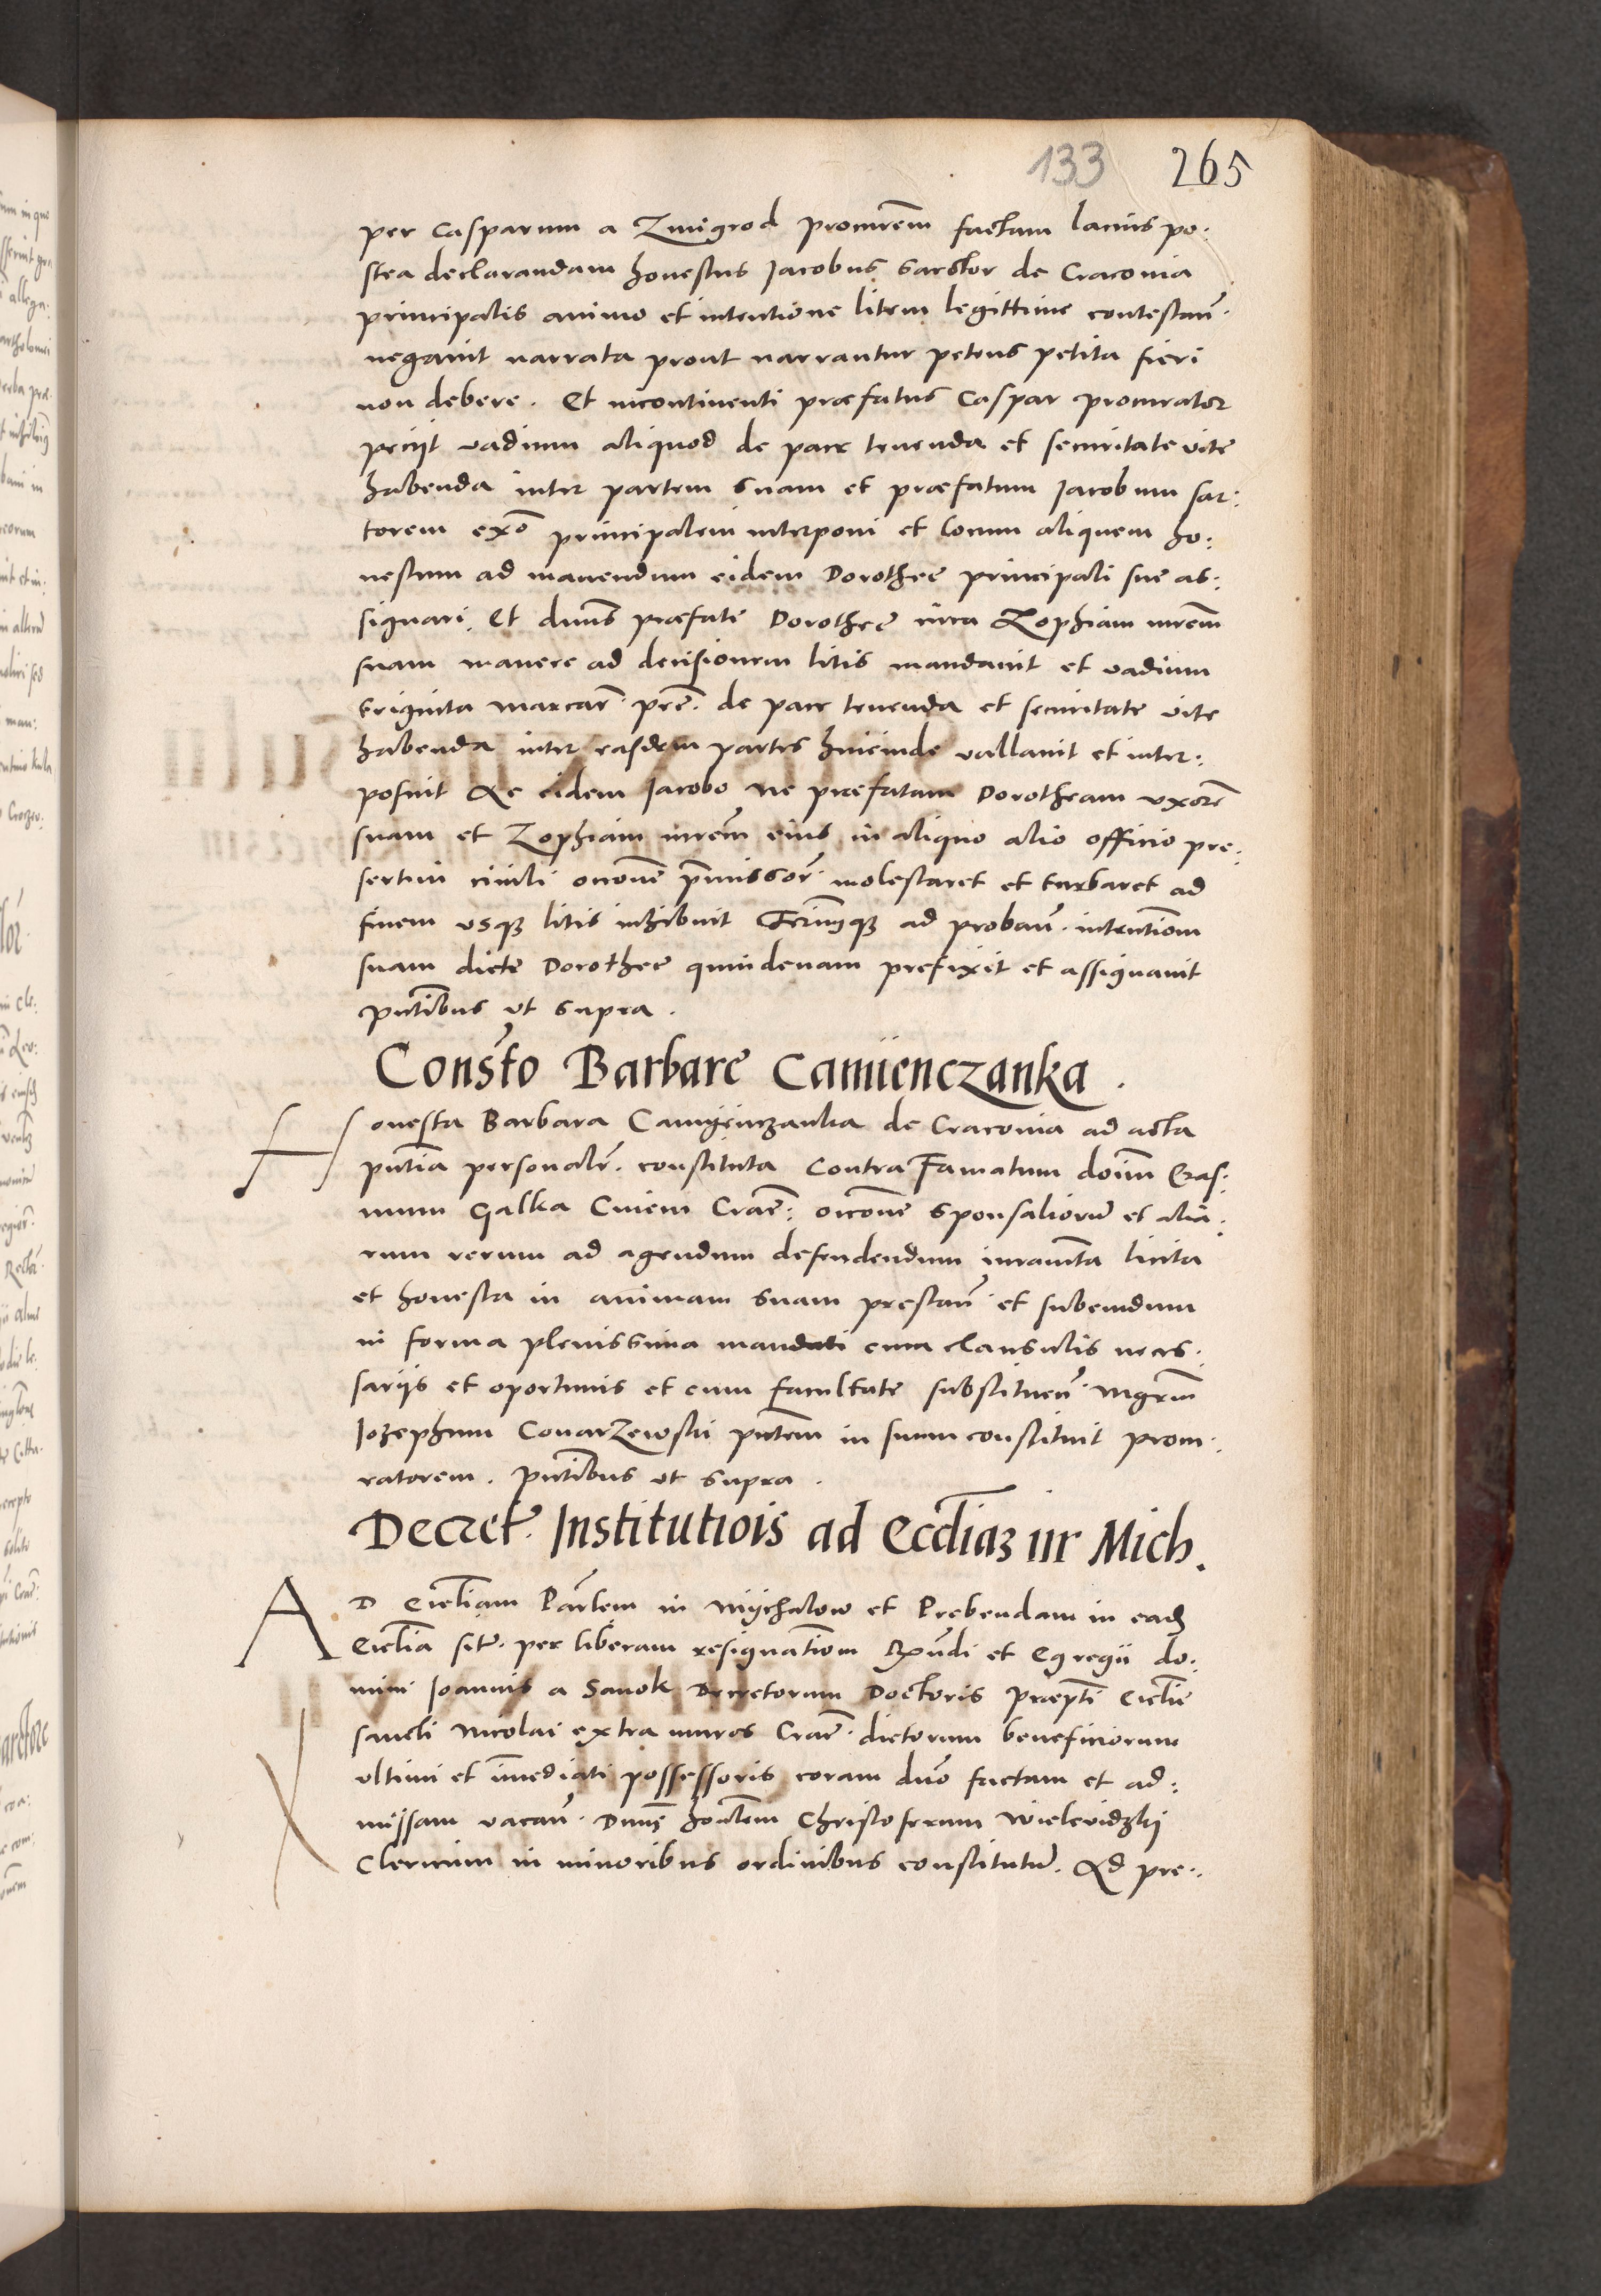 133 265
per Casparum a Zmigrod procurem̃ factam lacius po:
stea declarandam honestus Jacobus sarctor de Cracovia
principalis animo et intentione litem legittime contestan̄.
negavit narrata prout narrantur petens petita fieri
non debere. Et incontinenti præfatus Caspar procurator
peciit vadium aliquod de pace tenenda et securitate vite
habenda inter partem suam et præfatum Jacobum sar:
torem ex̃o principalem interponi et locum aliquem ho:
nestum ad manendum eidem Dorothee principali sue as:
signari. Et dnūs præfate Dorothee circa Zophiam mrēm
suam manere ad decisionem litis mandavit et vadium
triginta marcar̃. prẽ. de pace tenenda et securitate vite
habenda inter easdem partes hincinde vallavit et inter:
posuit Ac eidem Jacobo ne præfatam Dorotheam uxorē
suam et Zophiam mrēm eius in aliquo alio officio pre:
sertim civili occōne p̄missor̃. molestaret et turbaret ad
finem usq₃ litis inhibuit Terīmq₃ ad proban̄. intentiōm
suam dicte Dorothee quindenam prefixit et assignavit
pn̄tibus ut supra.
Consto Barbare Camiienczanka.
Honesta Barbara Camyenczanka de Cracovia ad acta
pn̄tia personalr̃. constituta Contra Famatum doīm Eras:
mum Galka Civem Cracē: occōne sponsaliorū et alia:
rum rerum ad agendum defendendum iuramīta licita
et honesta in animam suam prestan̄. et subeundum
in forma plenissima mandati cum clausulis neces:
sariis et oportunis et cum facultate substituen̄. mgr̄m
Jozephum Conarzewski pn̄tem in suum constituit procu:
ratorem. pn̄tibus ut supra.
Decret̃. Institutiois ad Eccliā₃ in Mich.
AD Ecctiam Parlem in Mychalow et Prebendam in eadē
Ecctia sit̃. per liberam resignatiōm R̃ndi et Egregii do:
mini Joannis a Sanok Decretorum Doctoris Præpti Ecctie
sancti Nicolai extra muros Cracē. dictorum beneficiorum
ultimi et im̄ediati possessoris coram dn̄o factam et ad:
missam vacan̄. Dnūs hon̄lem Christoferum Wielevidzkj
Clericum in minoribus ordinibus constitutū. Ad pre: